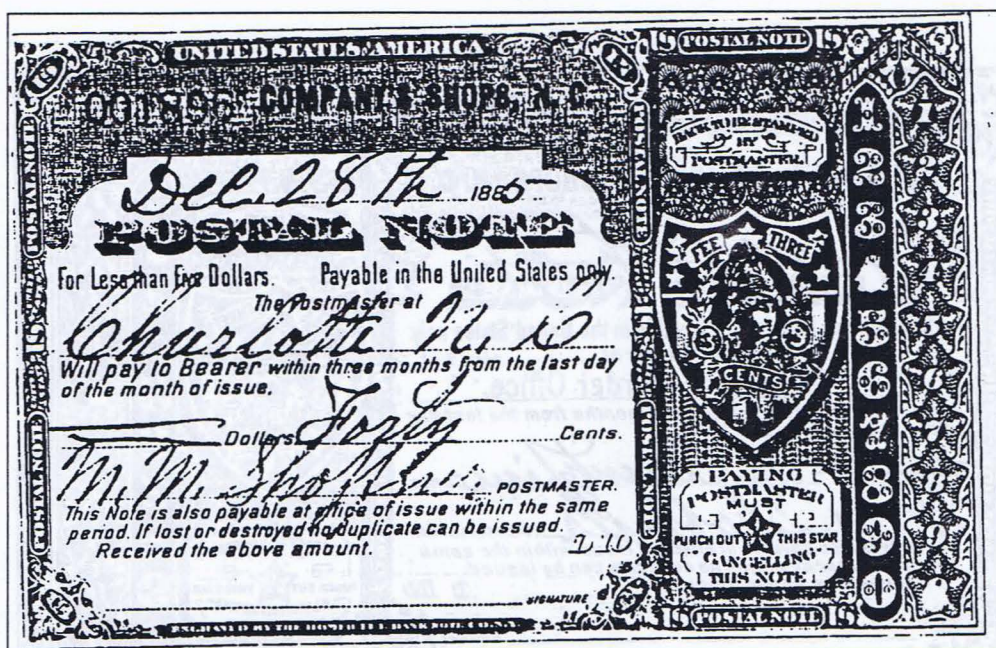 UNITED STATES AMERICA
001895 COMPANY'S SHOPS, N. C.
Dec. 28th 1885
POSTAL NOTE
For Less than Five Dollars. Payable in the United States only.
The Postmaster at
Charlotte N. C
Will pay to Bearer within three months from the last day
of the month of issue,
Dollars Forty Cents.
M. M. POSTMASTER.
This Note is also payable at office of issue within the same
period. If lost or destroyed no duplicate can be issued.
Received the above amount.
SIGNATURE
ENGRAVED BY THE HOMER LEE BANK NOTE CO. N.Y.
POSTAL NOTE
POSTAL NOTE
POSTAL NOTE
POSTAL NOTE
POSTAL NOTE
BACK TO BE STAMPED
BY
POSTMASTER.
FEE THREE
3 3
CENTS
PAYING
POSTMASTER
MUST
PUNCH OUT THIS STAR
"CANCELLING"
THIS NOTE
POSTAL NOTE
DIMES CENTS
1 1
2 2
3 3
4
5 5
6 6
7 7
8 8
9 9
0